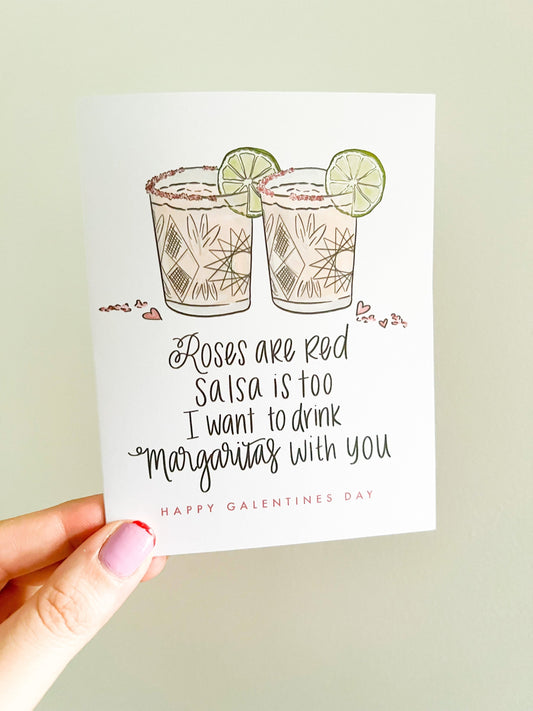 Roses are red
salsa is too
I want to drink
margaritas with you
HAPPY GALENTINES DAY